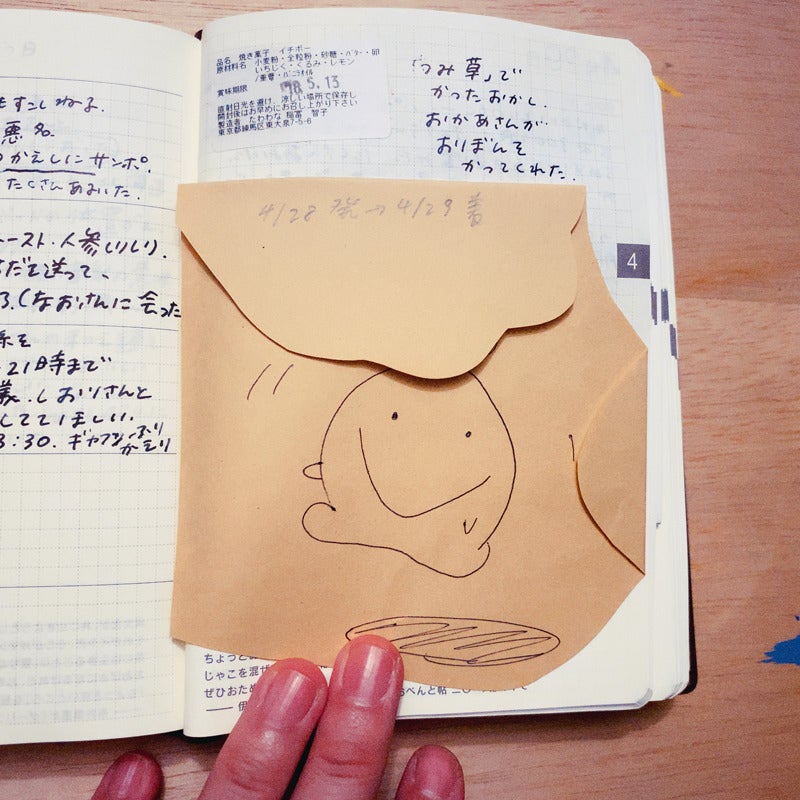 もすこしねる.
悪名.
かえしにサンポ.
たくさんあるいた.
ースト・人参しりしり.
だを送って、
3.(なおさんに会った
21時まで
しおりさんと
してしてほしい.
3:30. ギャフン ふり
かえり
品名 焼き菓子 イチボー
原材料名 小麦粉・全粒粉・砂糖・バター・卵
いちじく・くるみ・レモン
/重曹・バニラオイル
賞味期限 18.5.13
直射日光を避け、涼しい場所で保存し
開封後はお早めにお召し上がり下さい
製造者 たわわな 稲冨 智子
東京都練馬区東大泉7-5-6
「つみ草」で
かったおかし.
おかあさんが
おりぼんを
かってくれた.
4/28 発→4/29 着
4
ちょっと
じゃこを混ぜ
ぜひおため